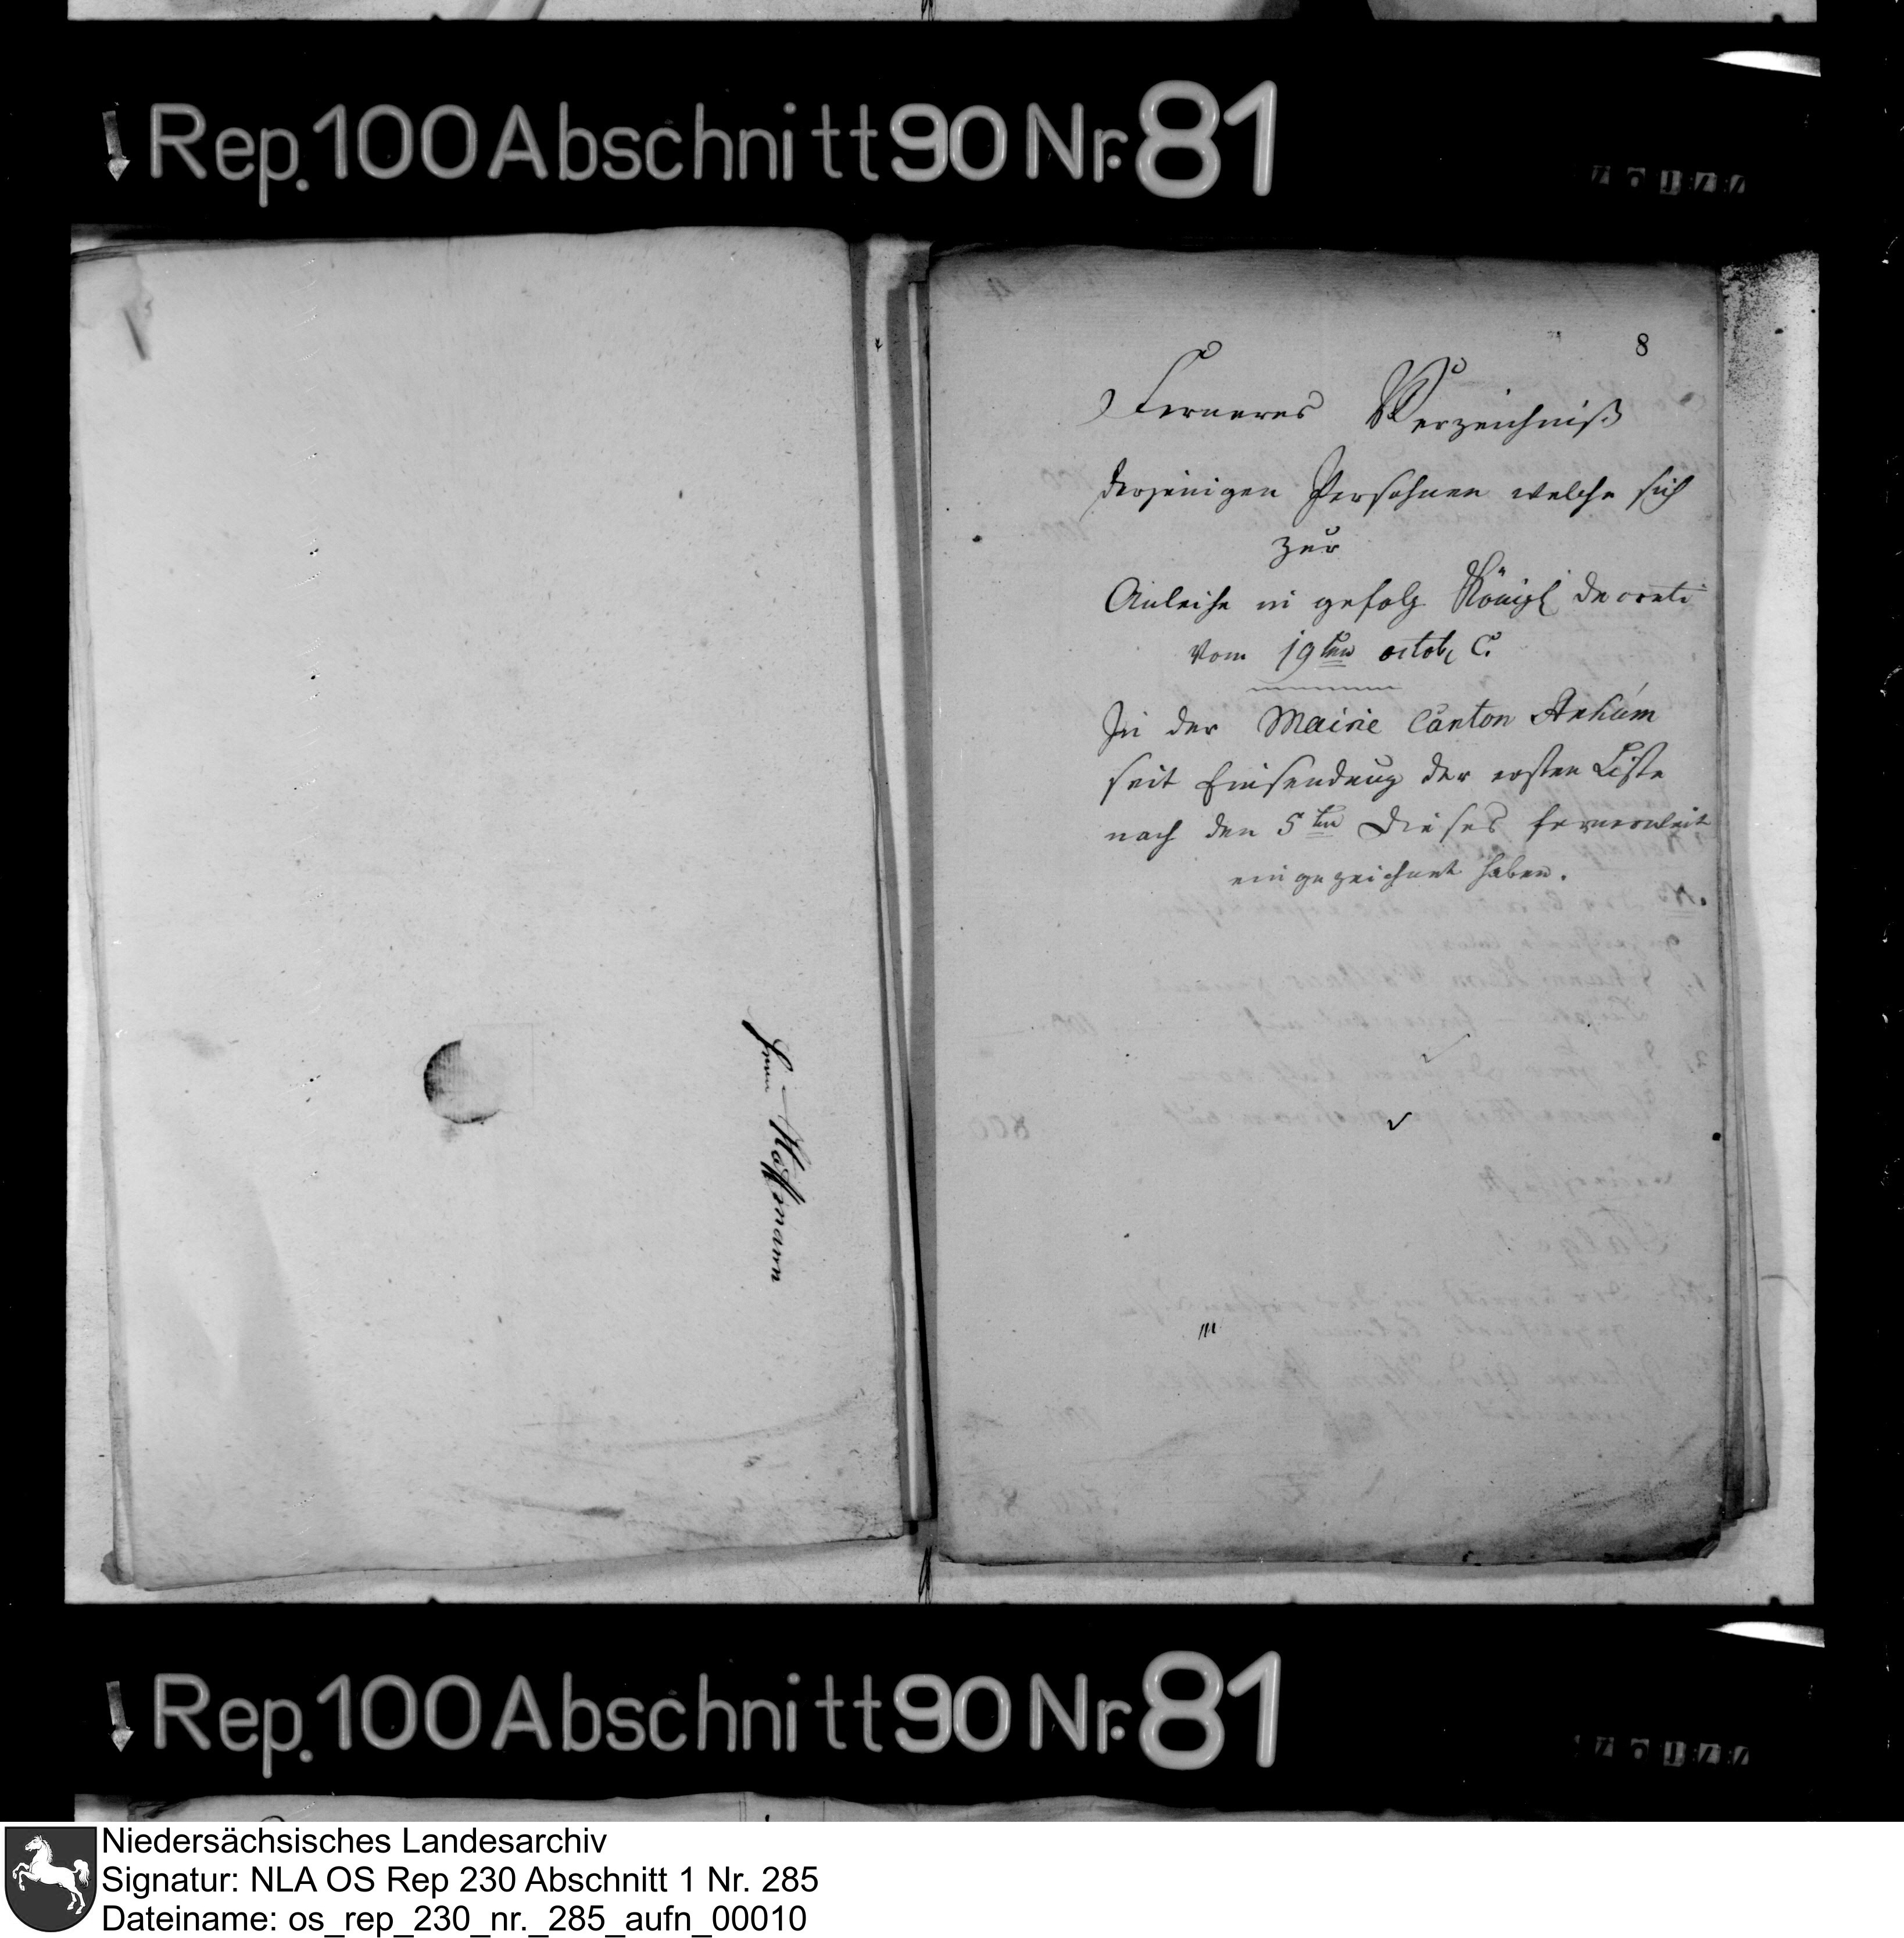 Rep. 100 Abschnitt 90 Nr. 81
Herrn Hoffmann
8
Ferneres Verzeichniß
derjenigen Persohnen welche sich
zur
Anleihe in gefolg Königl decreti
vom 19ten octobr C.
In der Mairie Canton Ankum
seit Einsendung der ersten Liste
nach den 5ten dieses fernerweit
eingezeichnet haben.
Rep. 100 Abschnitt 90 Nr. 81
Niedersächsisches Landesarchiv
Signatur: NLA OS Rep 230 Abschnitt 1 Nr. 285
Dateiname: os_rep_230_nr._285_aufn_00010